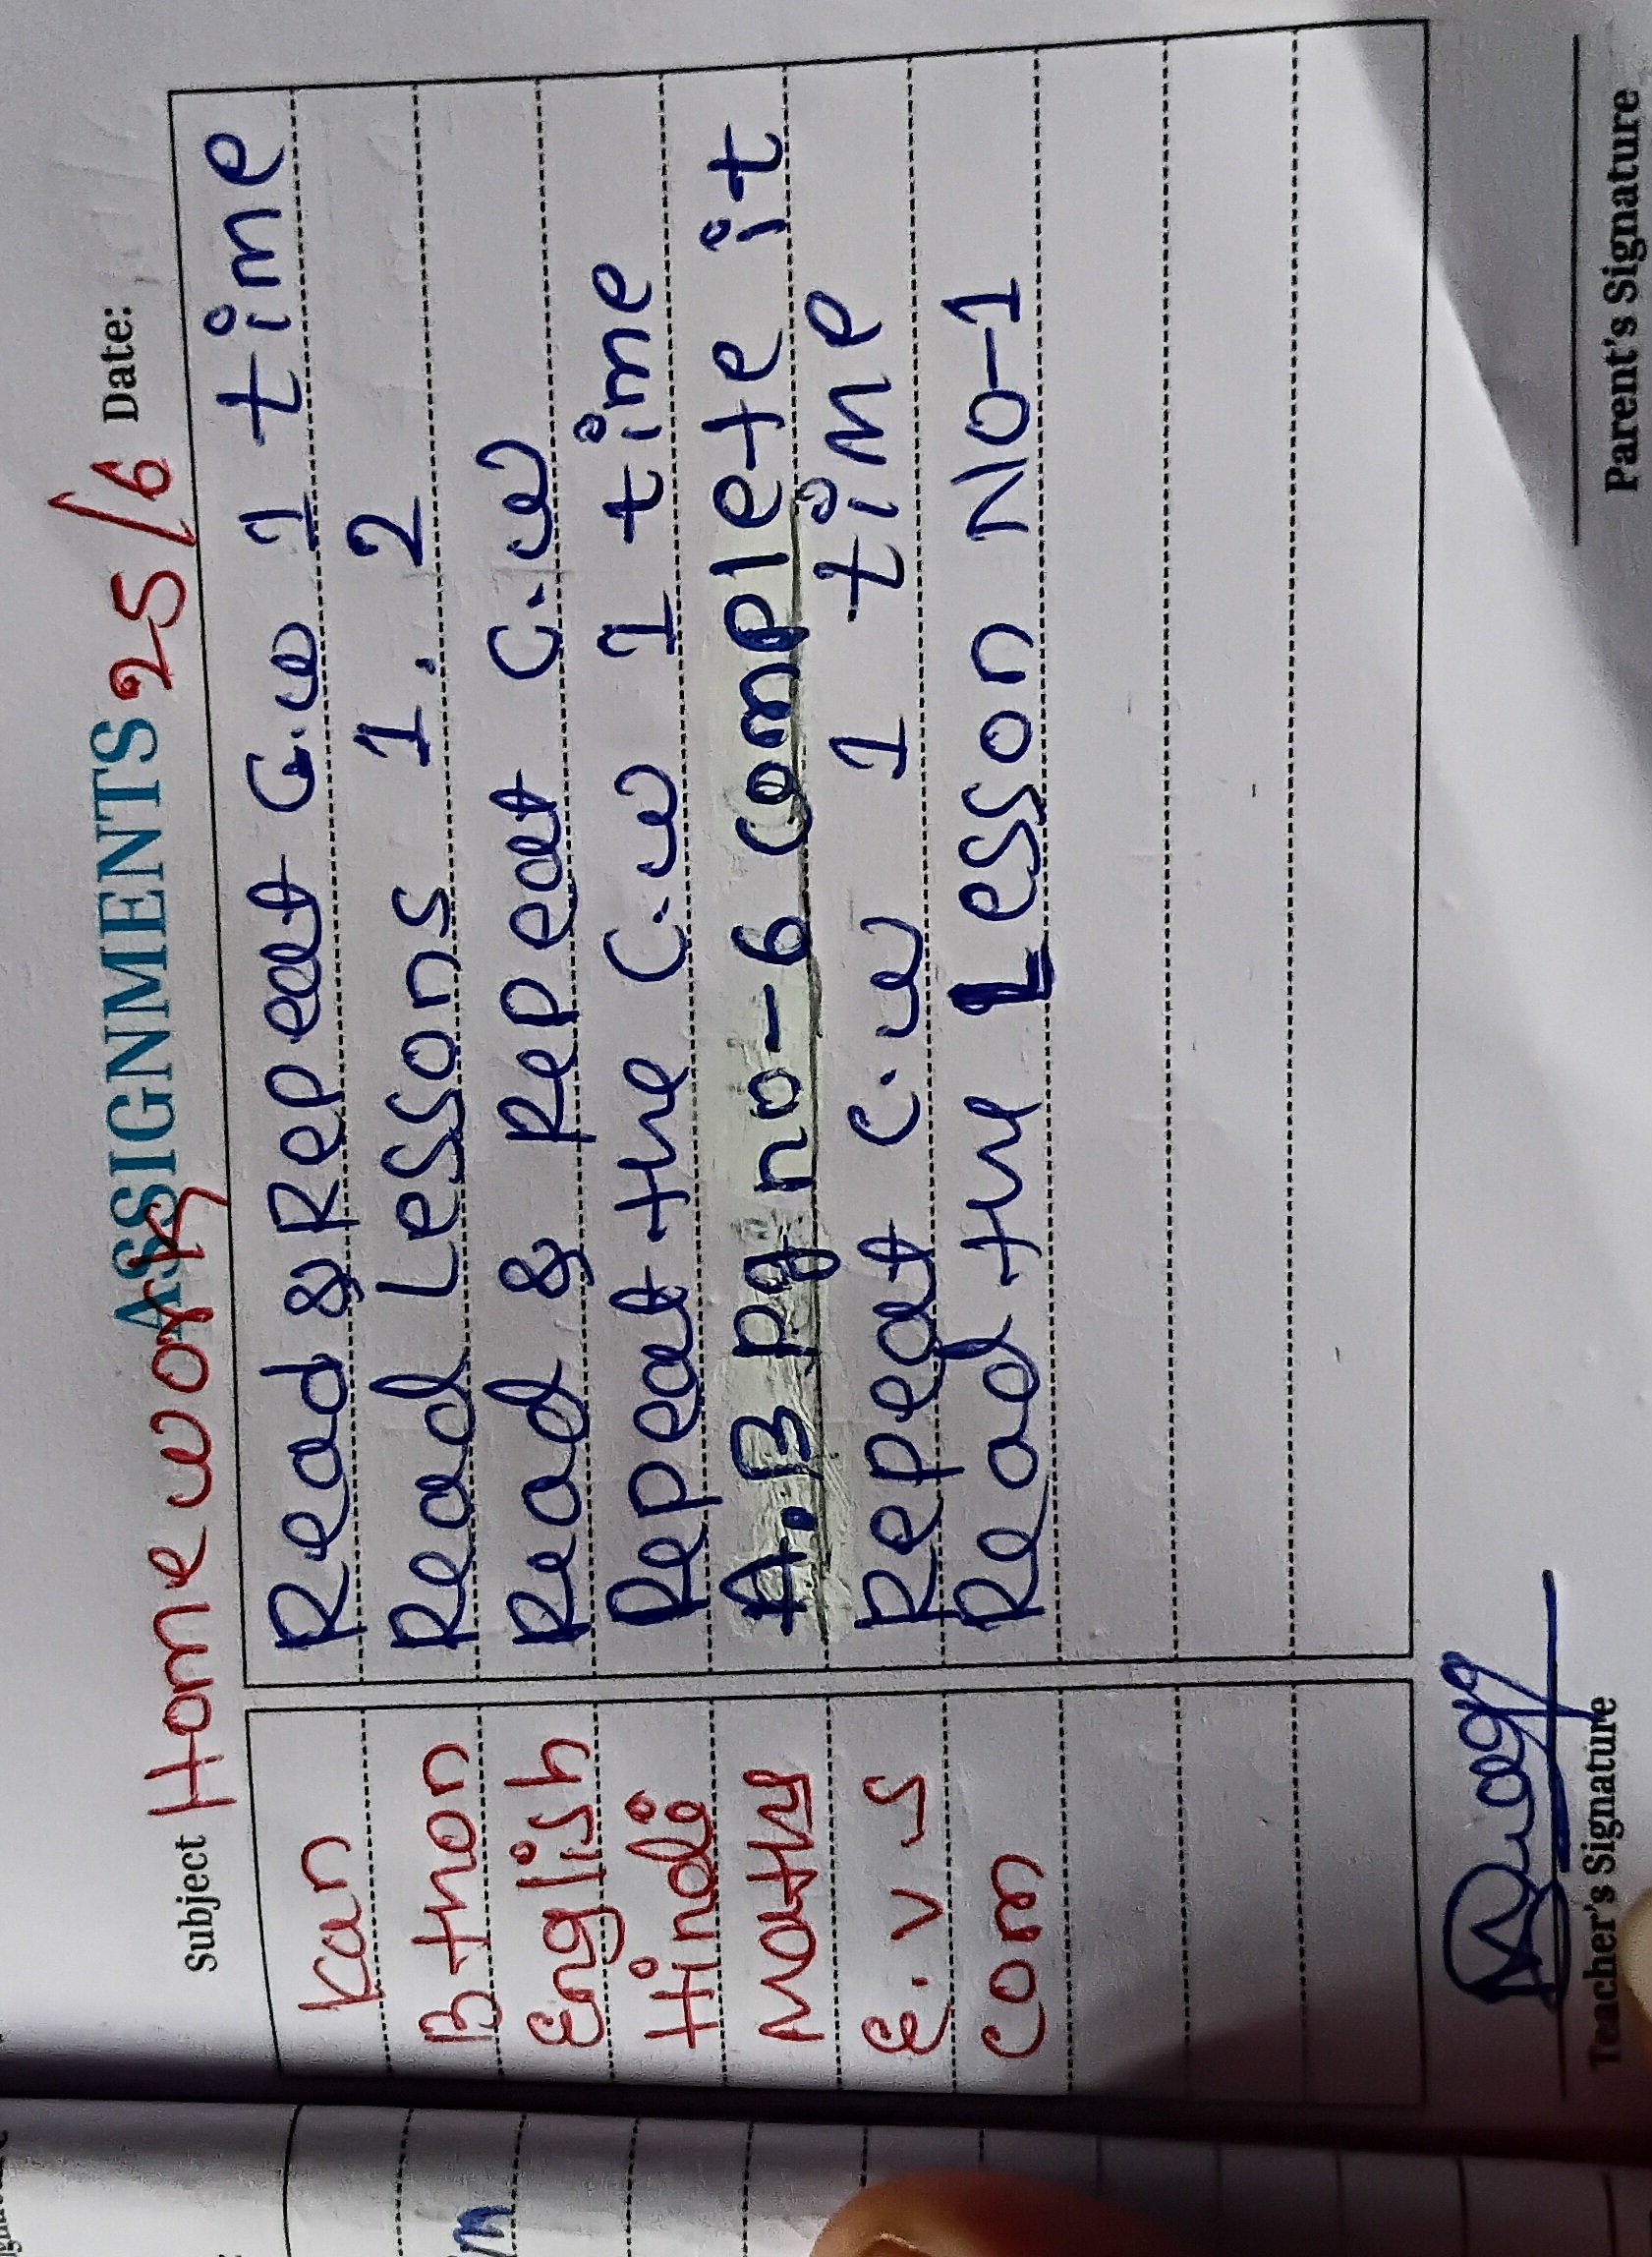 ASSIGNMENTS
Home work 25/6 Date:
Subject
Kan Read & Repeat C.w 1 time
B-thon Read Lessons 1. 2
English Read & Repeat C.w
Hindi Repeat the C.w 1 time
Maths A.B pg no-6 complete it
E.V.S Repeat C.w 1 time
Com Read the Lesson NO-1
Teacher's Signature Parent's Signature